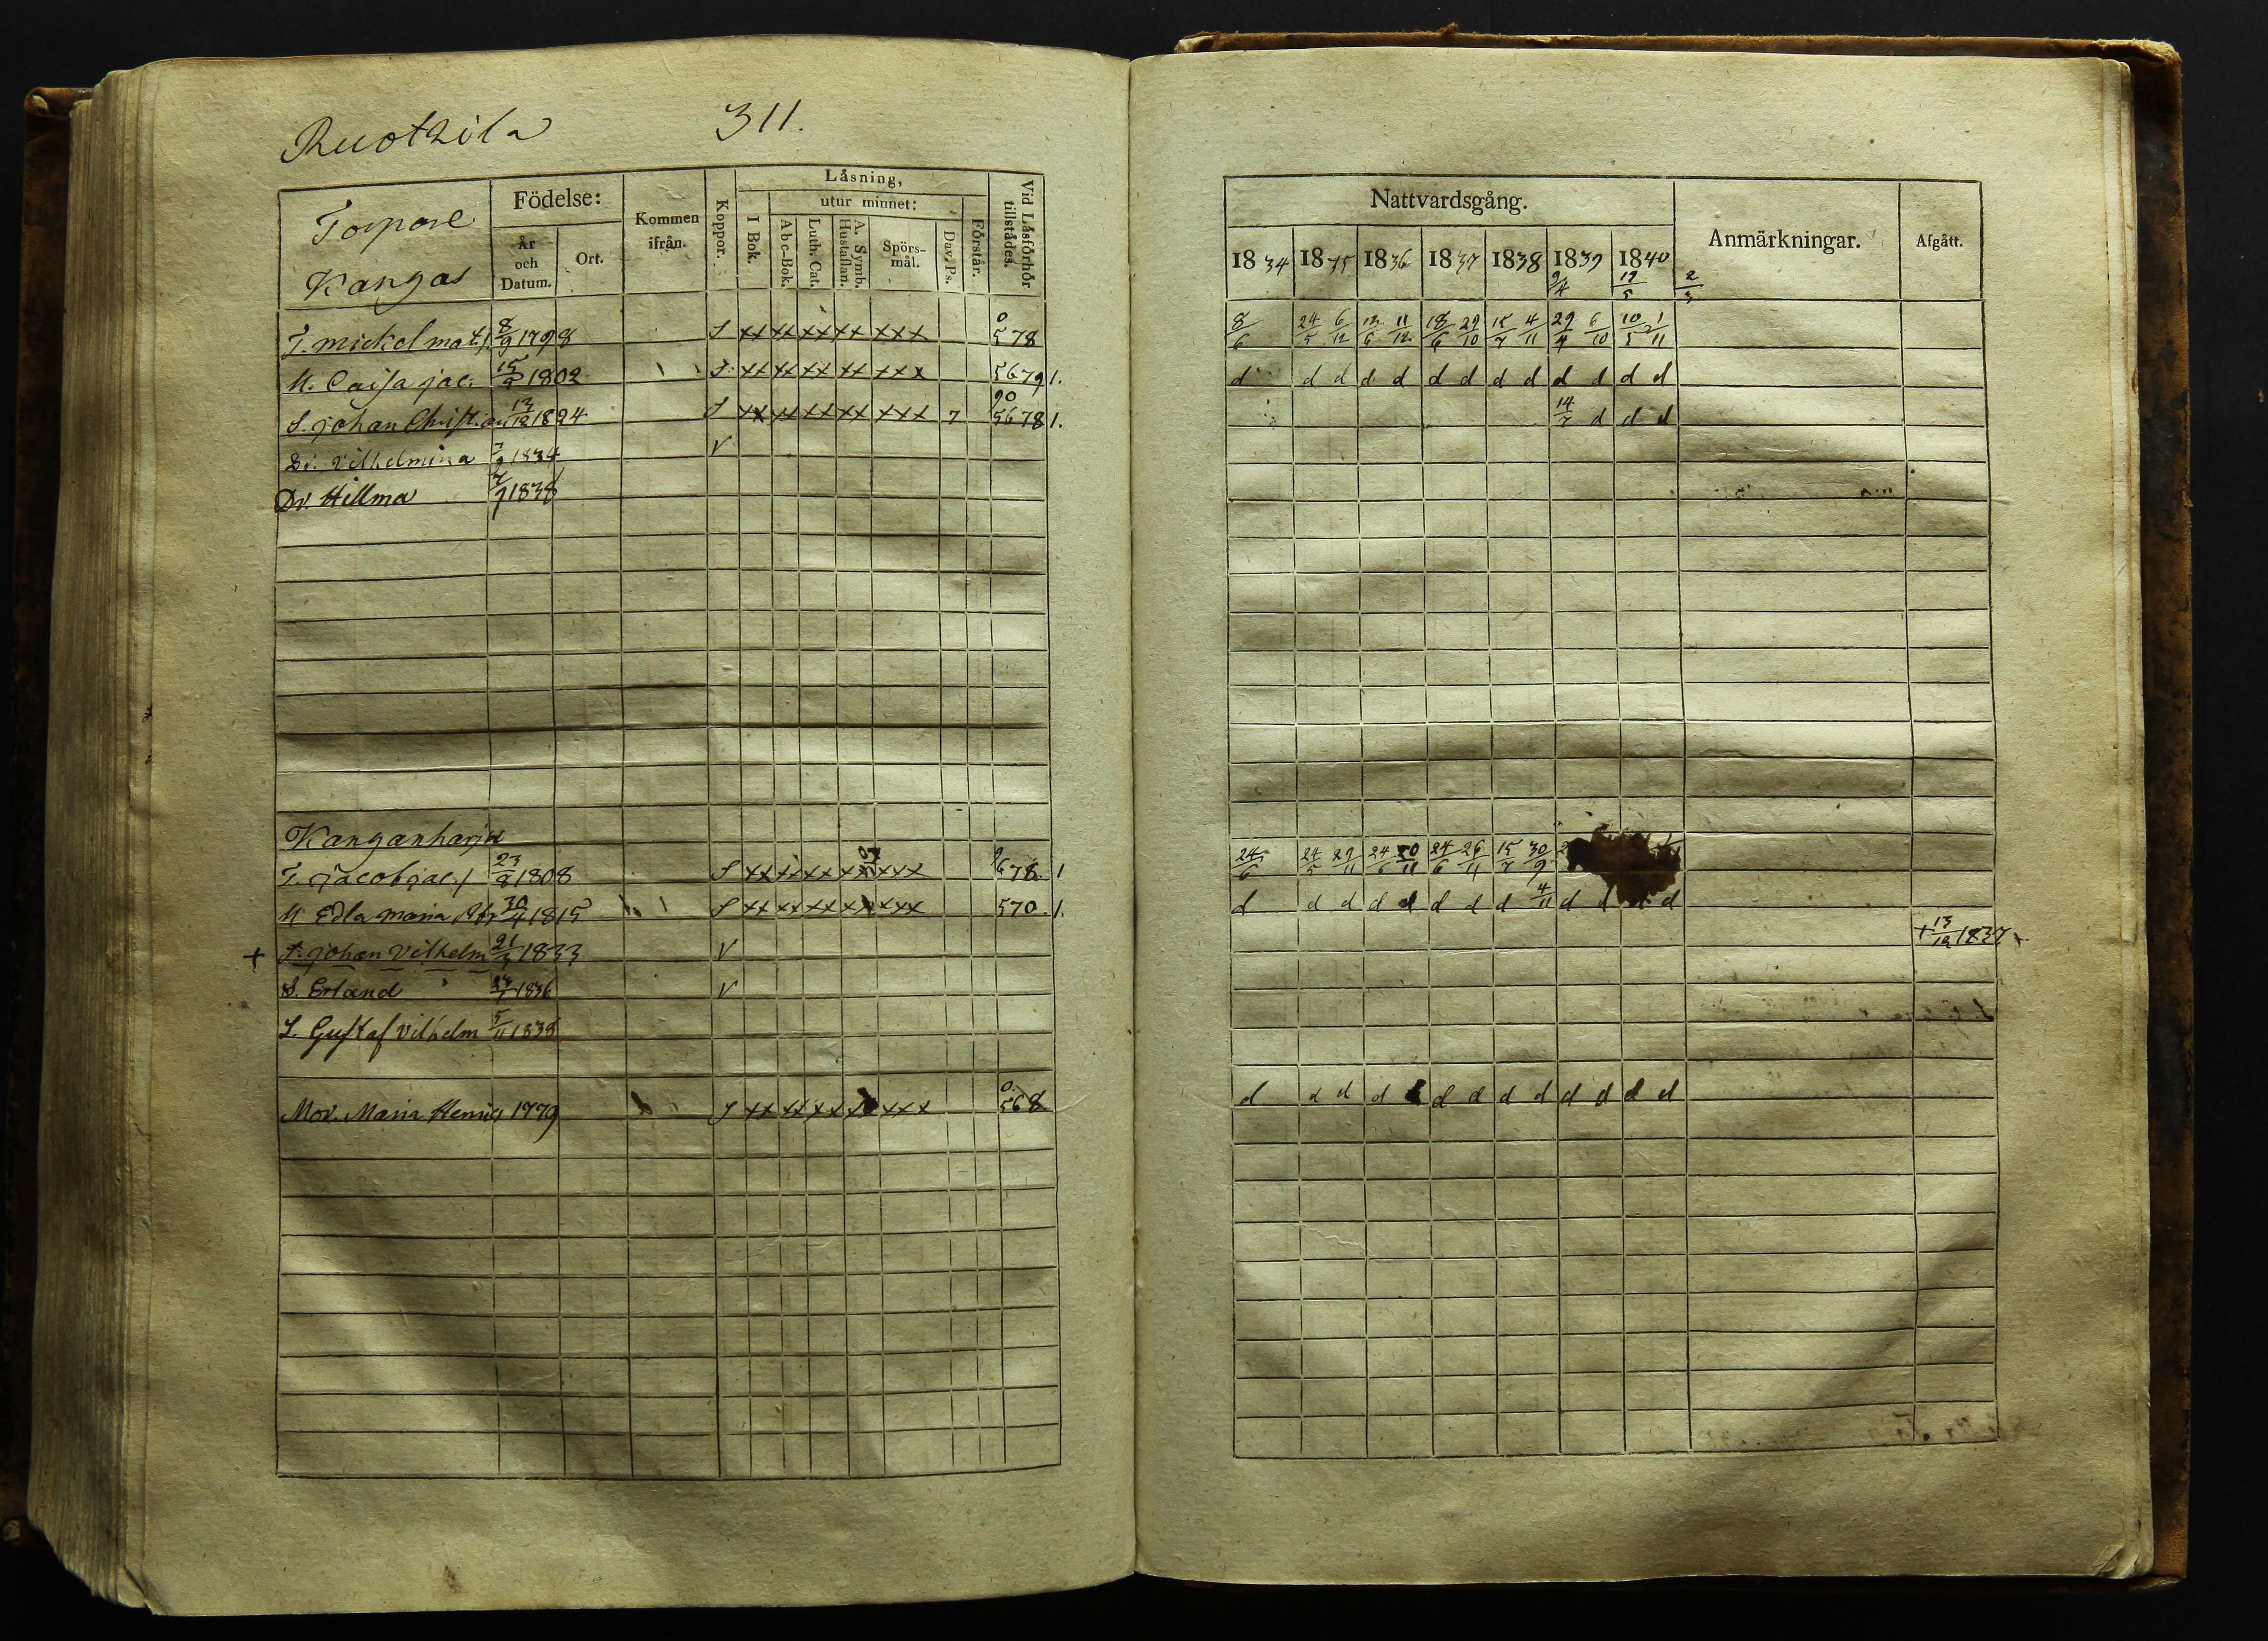 Ruotzila 311.
Torpare
Kangas
Födelse:
År och Datum.
Ort.
Kommen ifrån.
Koppor.
Läsning,
I Bok.
utur minnet:
Abc-Bok.
Luth. Cat.
A. Symb. Hustaflan.
Spörs-mål.
Dav. Ps.
Förstår.
Vid Läsförhör tillstädes.
T. Mickel mats 8/9 1798 S xx xx xx xx xxx 0 578
H. Caisa jac. 15/9 1802 S xx xx xx xx xxx 5679 1.
S. johan Christian 13/12 1824 S xx xx xx xx xxx 7 90 5678 1.
Dr. Vilhelmina 1834 V
Dr. Hillma 2/7 1838
Kanganharju
T. jacob jac. 23/9 1808 S xx xx xx xx xxx 9 678. 1
H Edla maria 30/4 1815 S xx xx xx xx xxx 570. 1.
+ S. johan Vilhelm 1833 V
S. Erland 1836 V
S. Gustaf Vilhelm 5/11 1838
Mod. Maria Henrics 1779 S xx xx xx xx xxx 0. 568
Nattvardsgång.
Anmärkningar.
Afgått.
1834 1835 1836 1837 1838 1839 1840
9/4 19/5 2/5
8/6 24/5 6/12 13/6 11/12 18/6 29/10 15/7 4/11 29/4 6/10 10/5 1/11
d d d d d d d d d d d d d
14/7 d d d
24/6 24/5 29/11 24/6 20/11 24/6 26/11 15/7 30/9
d d d d d d d d 4/11 d d d d
+ 13/12 1837
d d d d d d d d d d d d